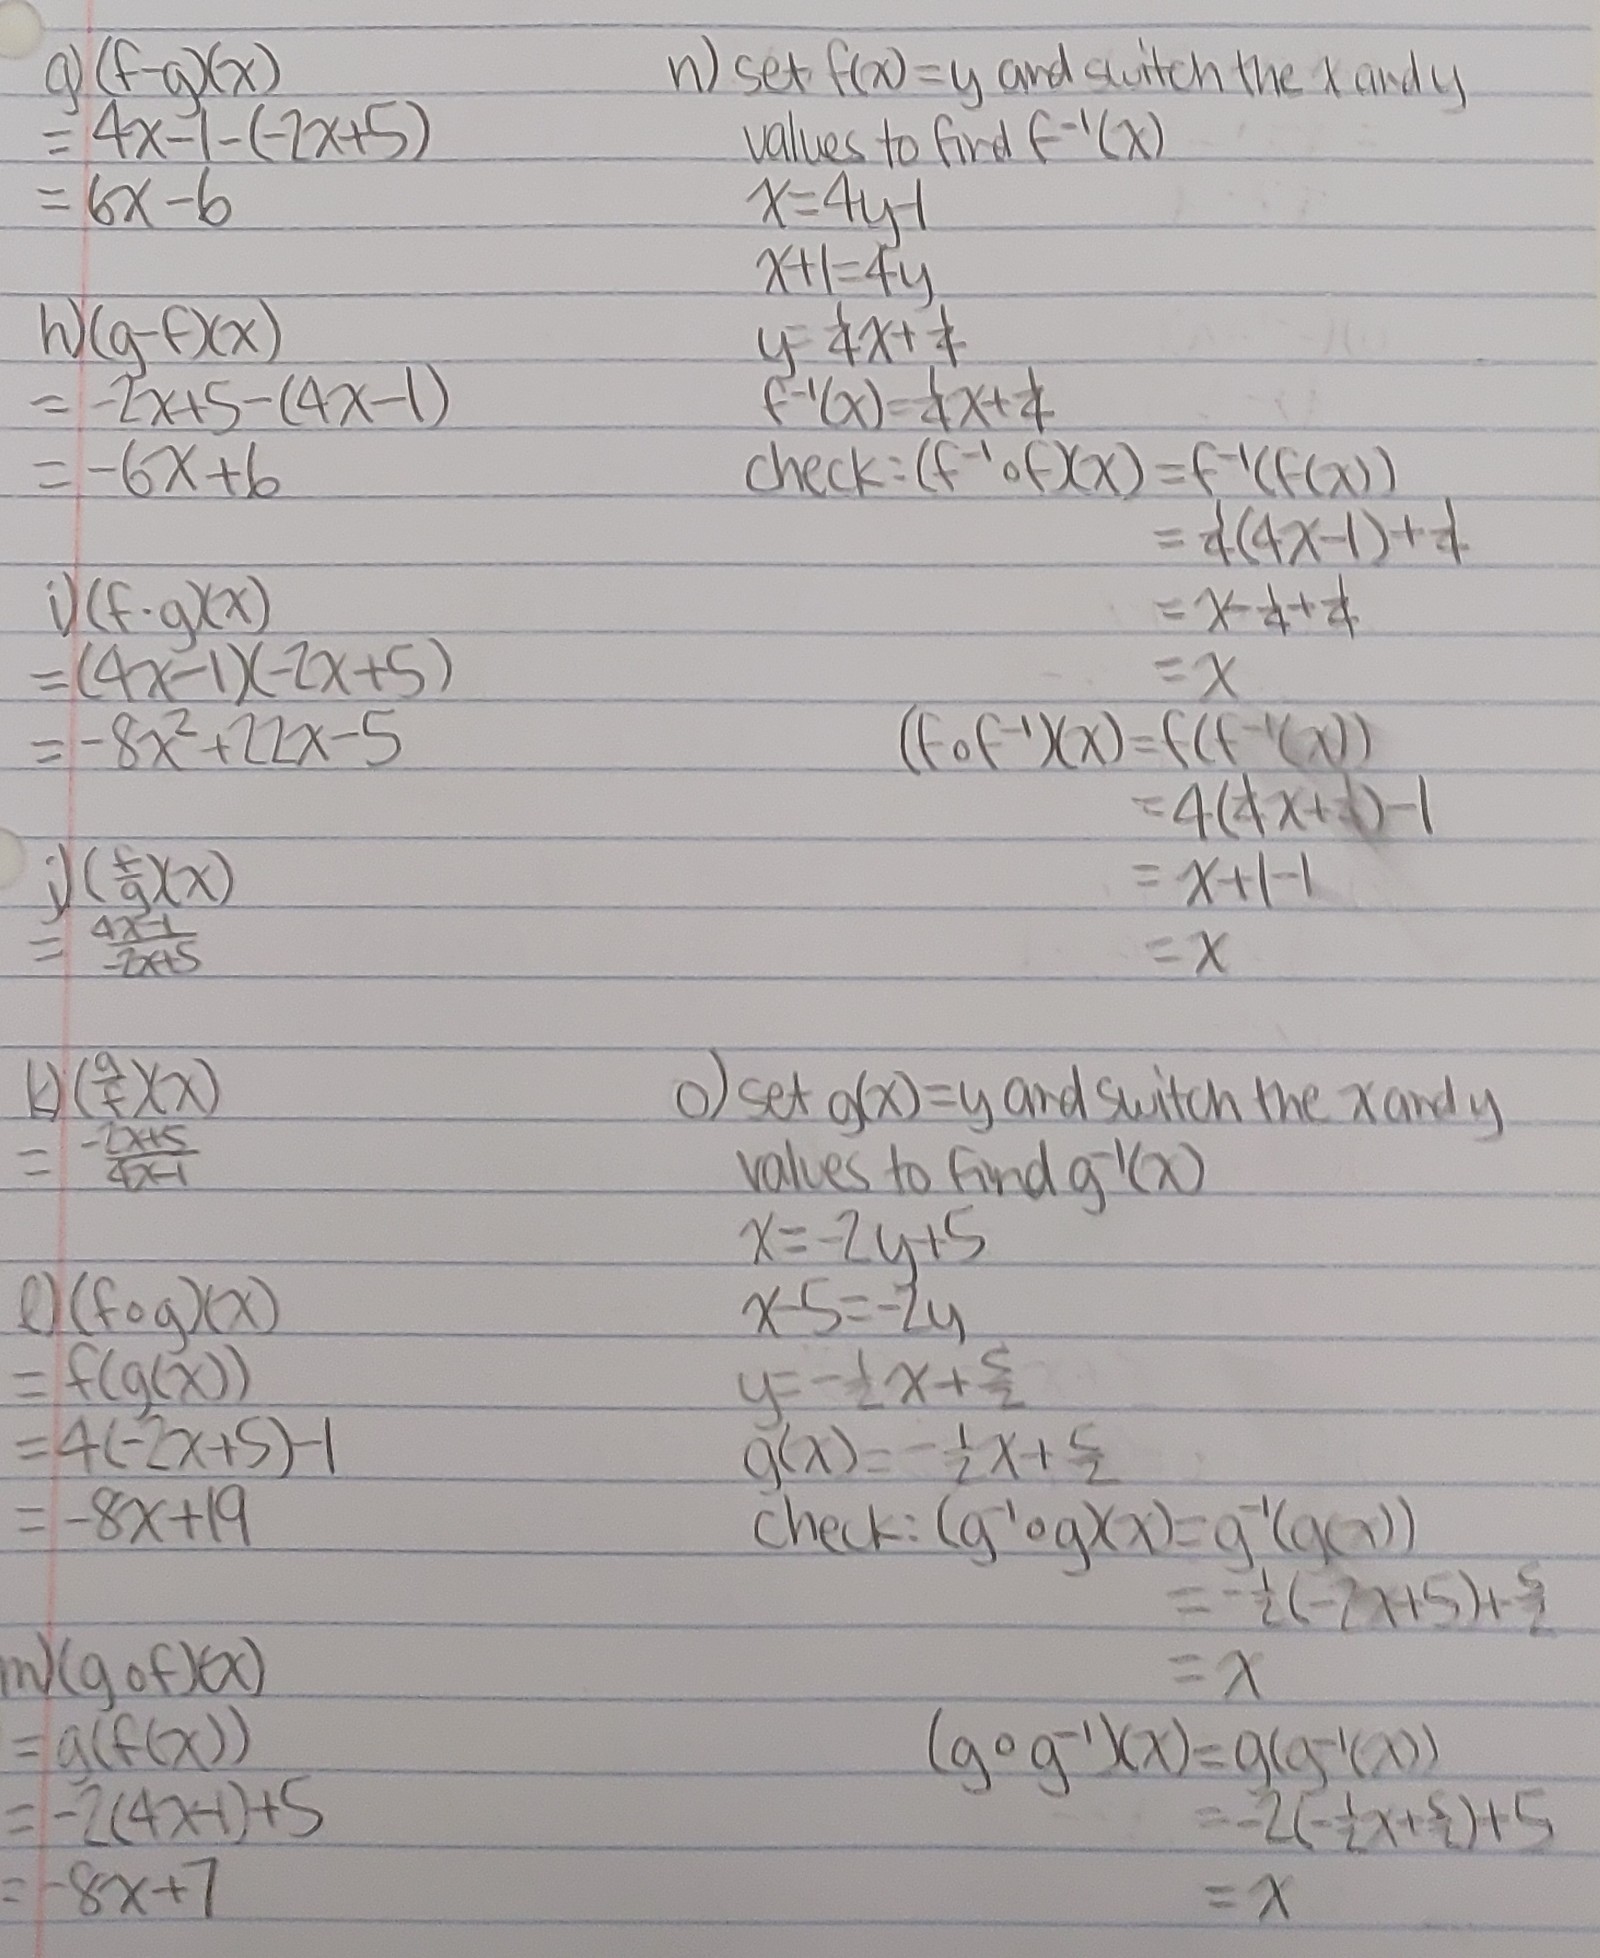 g) (f-g)(x)
= 4x-1-(-2x+5)
= 6x-6
h) (g-f)(x)
= -2x+5-(4x-1)
= -6x+6
i) (f·g)(x)
= (4x-1)(-2x+5)
= -8x²+22x-5
j) (f/g)(x)
= (4x-1)/(-2x+5)
k) (g/f)(x)
= (-2x+5)/(4x-1)
l) (f∘g)(x)
= f(g(x))
= 4(-2x+5)-1
= -8x+19
m) (g∘f)(x)
= g(f(x))
= -2(4x-1)+5
= -8x+7
n) set f(x)=y and switch the x and y
values to find f⁻¹(x)
x=4y-1
x+1=4y
y=1/4x+1/4
f⁻¹(x)=1/4x+1/4
check: (f⁻¹∘f)(x)=f⁻¹(f(x))
= 1/4(4x-1)+1/4
= x-1/4+1/4
= x
(f∘f⁻¹)(x)=f(f⁻¹(x))
= 4(1/4x+1/4)-1
= x+1-1
= x
o) set g(x)=y and switch the x and y
values to find g⁻¹(x)
x=-2y+5
x-5=-2y
y=-1/2x+5/2
g(x)=-1/2x+5/2
check: (g⁻¹∘g)(x)=g⁻¹(g(x))
= -1/2(-2x+5)+5/2
= x
(g∘g⁻¹)(x)=g(g⁻¹(x))
= -2(-1/2x+5/2)+5
= x